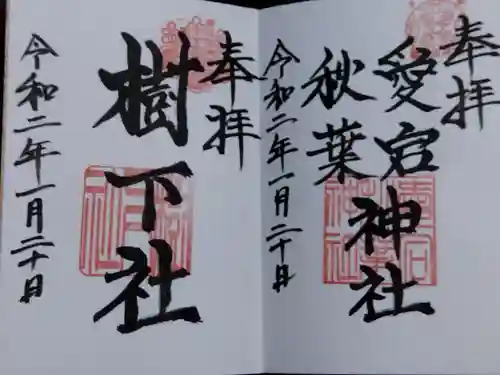 奉拝
愛宕
秋葉
神社
令和二年一月二十日
奉拝
樹下社
令和二年一月二十日